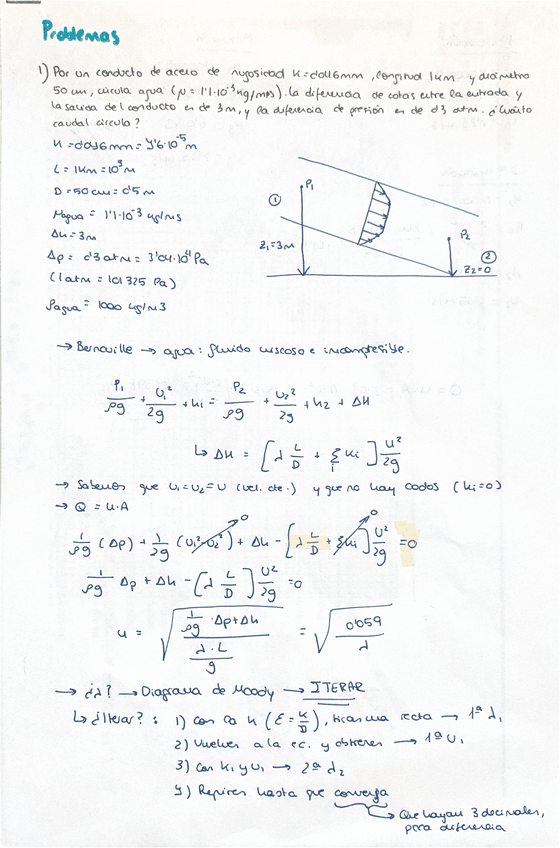 Problemas
1) Por un conducto de acero de rugosidad K=0'046mm, longitud 1km y diámetro
50 cm, circula agua (μ = 1'1·10⁻³ kg/m·s). La diferencia de cotas entre la entrada y
la salida del conducto es de 3m, y la diferencia de presión es de 0'3 atm. ¿Cuánto
caudal circula?
K = 0'046mm = 4'6·10⁻⁵ m
L = 1Km = 10³ m
D = 50 cm = 0'5 m
μagua = 1'1·10⁻³ kg/ms
Δh = 3m
Δp = 0'3 atm = 3'04·10⁴ Pa
(1 atm = 101325 Pa)
ρagua = 1000 kg/m3
①
P₁
z₁=3m
P₂
②
z₂=0
→ Bernouille → agua: fluido viscoso e incompresible.
P₁/ρg + U₁²/2g + h₁ = P₂/ρg + U₂²/2g + h₂ + ΔH
↳ ΔH = [λ L/D + Σi Ki] U²/2g
→ Sabemos que U₁=U₂=U (vel. cte.) y que no hay codos (Ki=0)
→ Q = u·A
1/ρg (Δp) + 1/2g (U₁²-U₂²)→0 + Δh - [λ L/D + ΣKi→0] U²/2g = 0
1/ρg Δp + Δh - [λ L/D] U²/2g = 0
u = √((1/ρg · Δp + Δh)/(λ·L/g)) = √(0'059/λ)
→ ¿λ? → Diagrama de Moody → ITERAR
↳ ¿Iterar? : 1) Con la K (ε = K/D), trazas una recta → 1ª λ₁
2) Vuelves a la ec. y obtienes → 1ª U₁
3) Con K₁ y U₁ → 2ª λ₂
4) Repites hasta que converja
↳ Que hayan 3 decimales,
poca diferencia